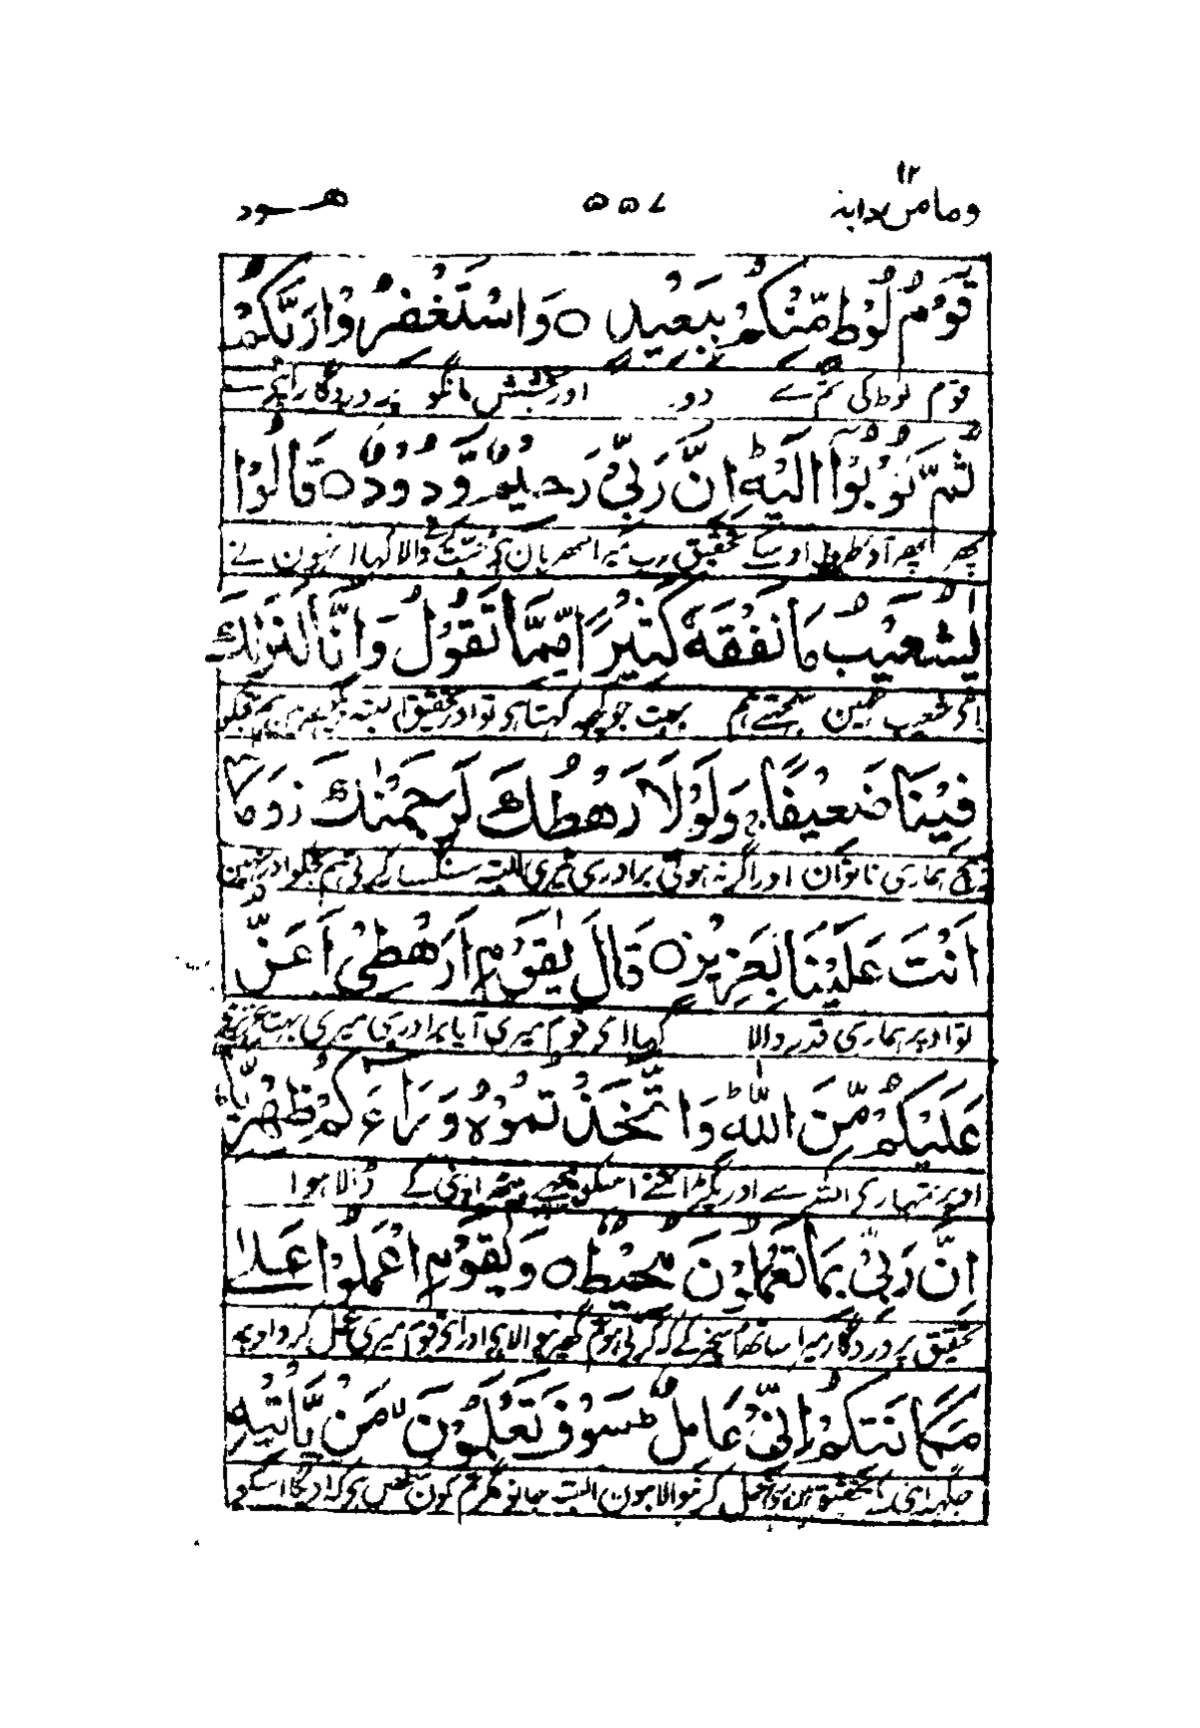 وما من دابة ١٢ ۵۵۷ هود
قَوْمُ لُوْطٍ مِّنْكُمْ بِبَعِيْدٍ ○ وَاسْتَغْفِرُوْا رَبَّكُمْ
قوم لوط کی تم سے دور اور بخشش مانگو پروردگار اپنے سے
ثُمَّ تُوْبُوْۤا اِلَيْهِ ؕ اِنَّ رَبِّيْ رَحِيْمٌ وَّدُوْدٌ ○ قَالُوْا
پھر پھر آؤ طرف اوسکے تحقیق رب میرا مہربان ہے دوستی کرنے والا کہا انہون نے
يٰشُعَيْبُ مَا نَفْقَهُ كَثِيْرًا مِّمَّا تَقُوْلُ وَاِنَّا لَنَرٰىكَ
اے شعیب نہین سمجھتے ہم بہت جو کچھ کہتا ہے تو اور تحقیق ہم البتہ دیکھتے ہین تجھکو
فِيْنَا ضَعِيْفًا ۚ وَلَوْلَا رَهْطُكَ لَرَجَمْنٰكَ ز وَمَاۤ
بیچ ہماری ناتوان اور اگر نہ ہوتی برادری تیری البتہ سنگسار کرتی ہم تجکو اور نہین
اَنْتَ عَلَيْنَا بِعَزِيْزٍ ○ قَالَ يٰقَوْمِ اَرَهْطِيْۤ اَعَزُّ
تو اوپر ہماری قدر والا کہا اے قوم میری آیا برادری میری بہت عزیز ہے
عَلَيْكُمْ مِّنَ اللّٰهِ ؕ وَاتَّخَذْتُمُوْهُ وَرَآءَكُمْ ظِهْرِيًّا ؕ
اوپر تمہارے اللہ سے اور پکڑا تمنے اسکو پیچھے پیٹھ اپنی کے ڈالا ہوا
اِنَّ رَبِّيْ بِمَا تَعْمَلُوْنَ مُحِيْطٌ ○ وَيٰقَوْمِ اعْمَلُوْا عَلٰى
تحقیق پروردگار میرا ساتھ اس چیز کے کہ کرتی ہو تم گھیرنیوالا ہے اور اے قوم میری عمل کرو اوپر
مَكَانَتِكُمْ اِنِّيْ عَامِلٌ ؕ سَوْفَ تَعْلَمُوْنَ ۙ مَنْ يَّاْتِيْهِ
جگہ اپنی کے تحقیق مین بھی عمل کرنیوالا ہون البتہ جانوگے تم کون شخص ہے کہ آویگا اسکو